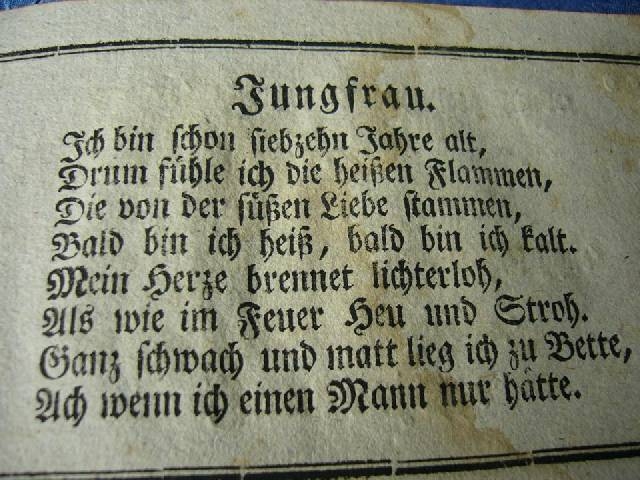 Jungfrau.
Ich bin schon siebzehn Jahre alt,
Drum fühle ich die heißen Flammen,
Die von der süßen Liebe stammen,
Bald bin ich heiß, bald bin ich kalt.
Mein Herze brennet lichterloh,
Als wie im Feuer Heu und Stroh.
Ganz schwach und matt lieg ich zu Bette,
Ach wenn ich einen Mann nur hätte.